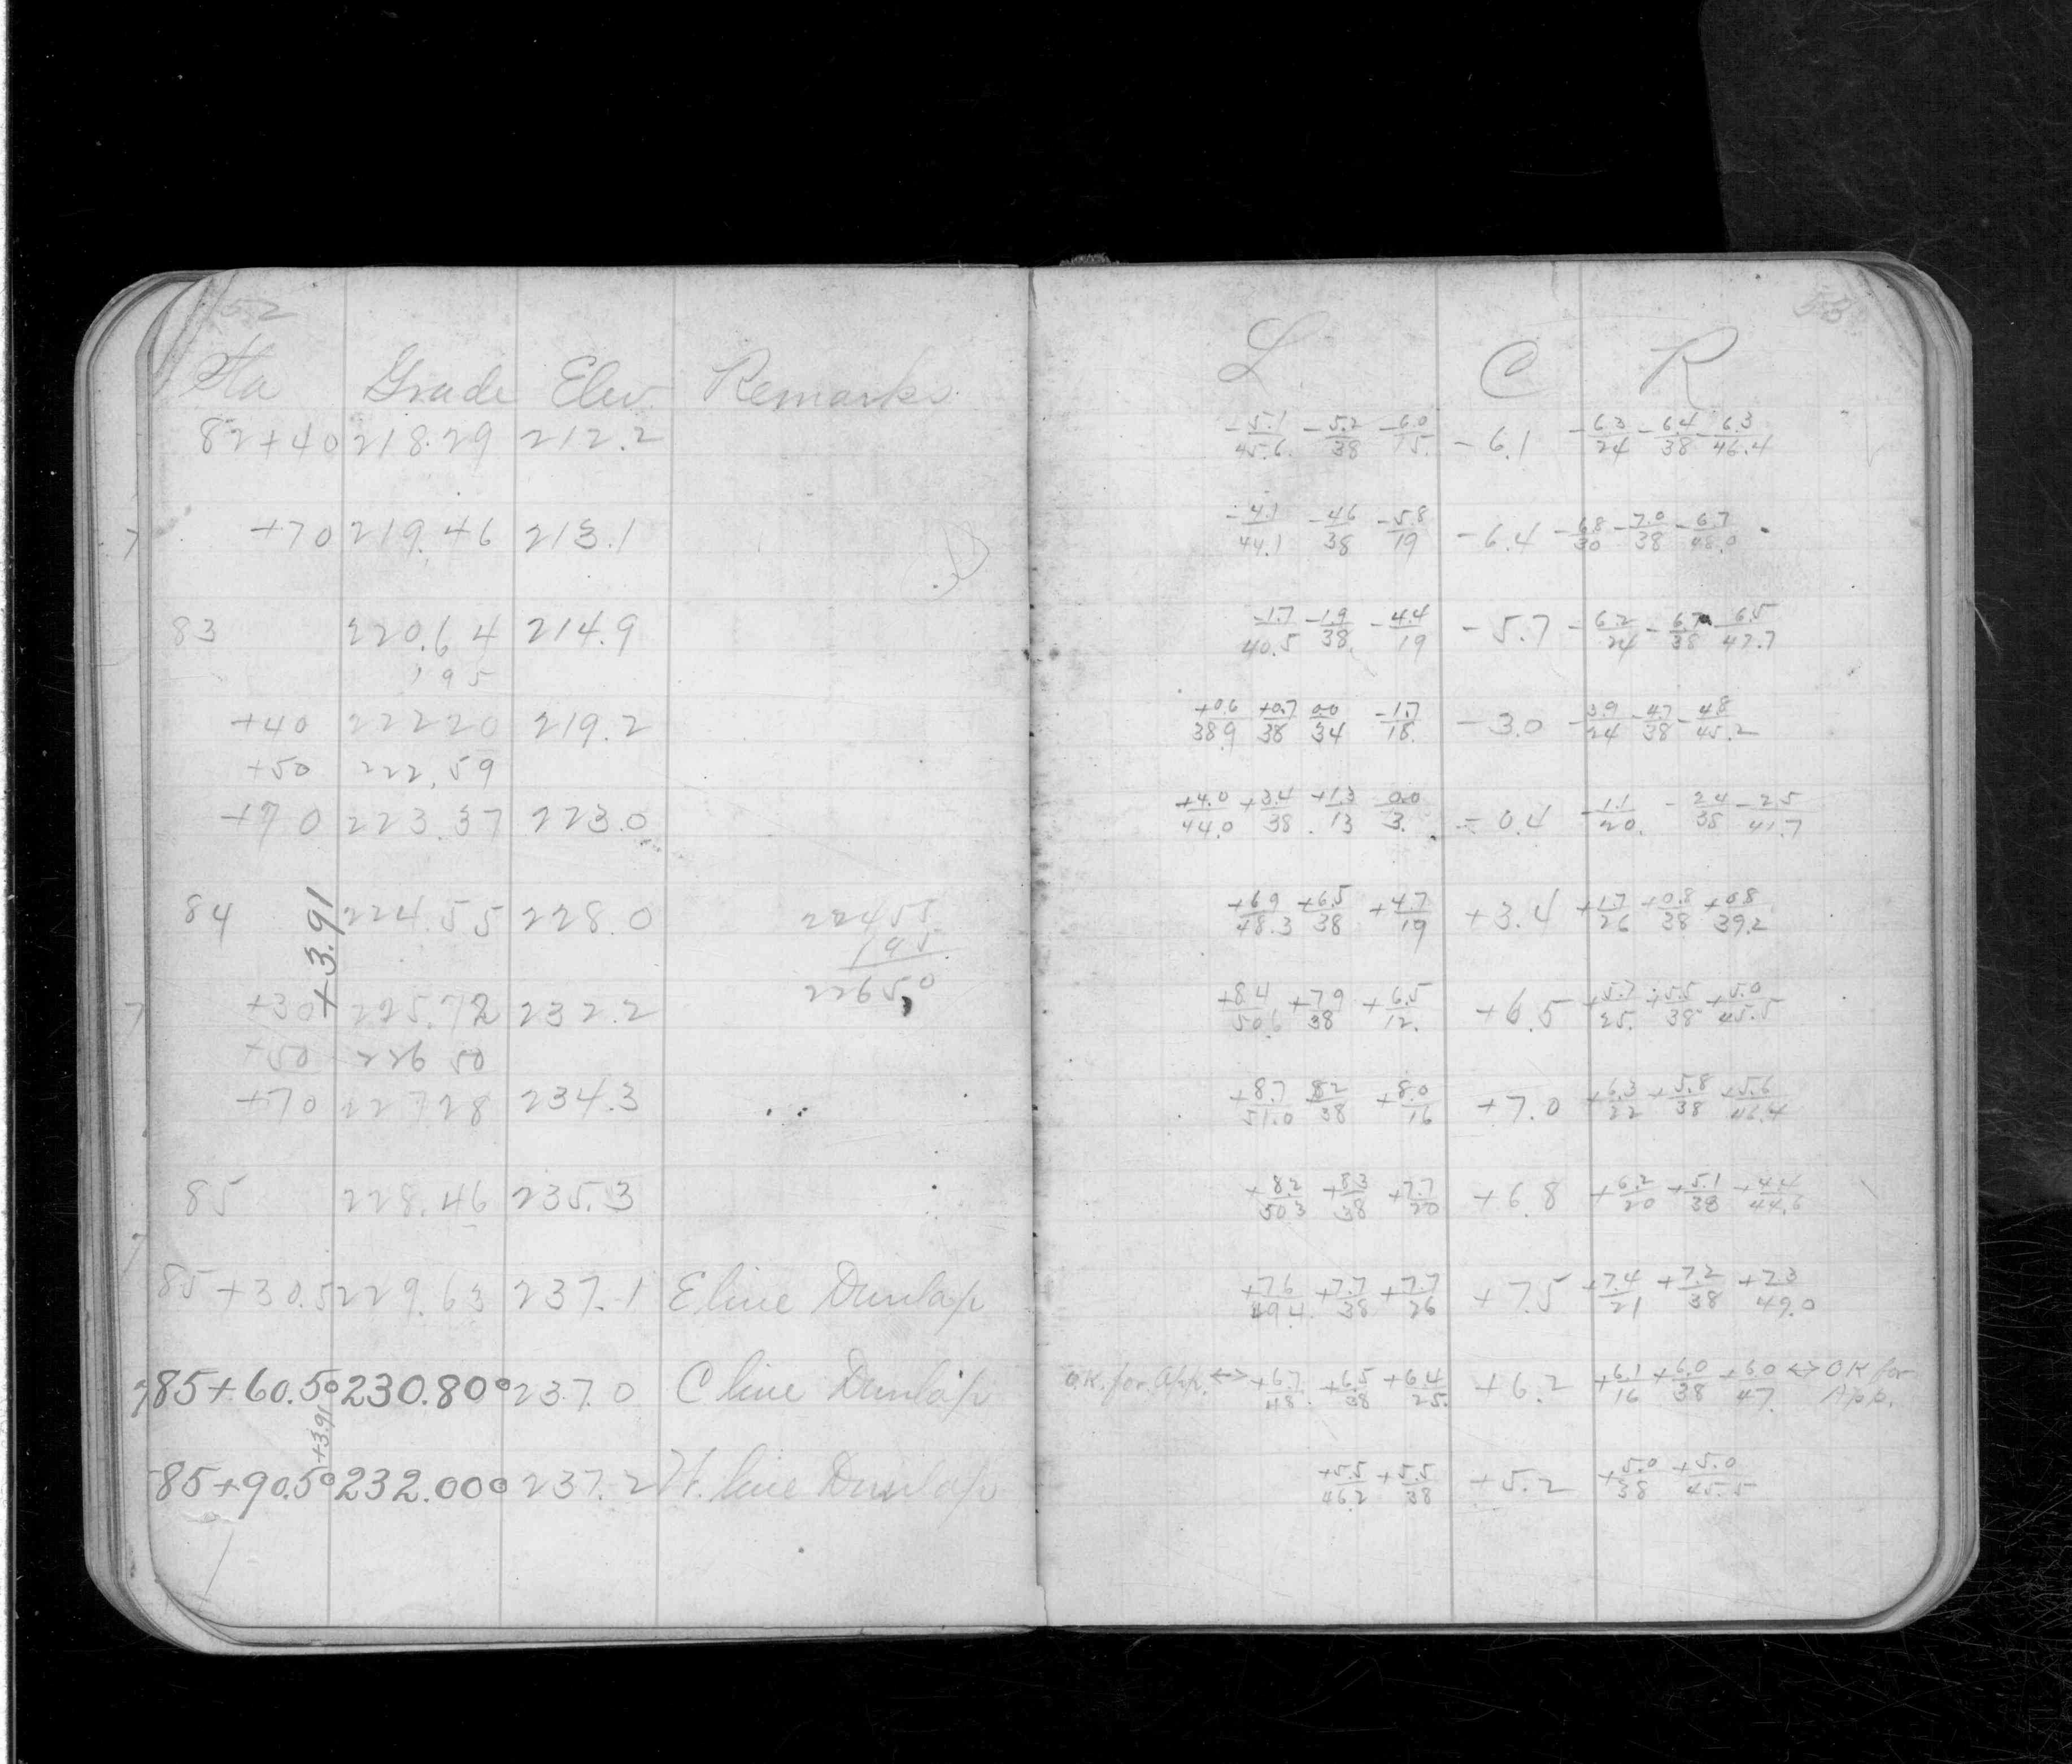 52
Sta Grade Elev Remarks
82+40 218.29 212.2
+70 219.46 213.1
83 220.64 214.9
195
+40 222 20 219.2
+50 222.59
+70 223.37 223.0
84 +3.91 224.55 228.0 22455
195
+30 225.72 232.2 22650
+50 226 50
+70 227 28 234.3
85 228.46 235.3
85+30.5 229.63 237.1 E line Dunlap
85+60.50 230.80 237.0 C line Dunlap
+3.91
85+90.50 232.00 237.2 W. line Dunlap
53
L C R
-5.1/45.6 -5.2/38 -6.0/15. -6.1 -6.3/24 -6.4/38 -6.3/46.4
-4.1/44.1 -4.6/38 -5.8/19 -6.4 -6.8/30 -7.0/38 -6.7/48.0
-1.7/40.5 -1.9/38. -4.4/19 -5.7 -6.2/24 -6.7/38 -6.5/47.7
+0.6/38.9 +0.7/38 0.0/34 -1.7/18. -3.0 -3.9/24 -4.7/38 -4.8/45.2
+4.0/44.0 +3.4/38. +1.3/13 0.0/3. -0.4 -1.1/20. -2.4/38 -2.5/41.7
+6.9/48.3 +6.5/38 +4.7/19 +3.4 +1.7/26 +0.8/38 +0.8/39.2
+8.4/50.6 +7.9/38 +6.5/12. +6.5 +5.7/25. +5.5/38 +5.0/45.5
+8.7/51.0 8.2/38 +8.0/16 +7.0 +6.3/22 +5.8/38 +5.6/46.4
+8.2/50.3 +8.3/38 +7.7/20 +6.8 +6.2/20 +5.1/38 +4.4/44.6
+7.6/49.4 +7.7/38 +7.7/26 +7.5 +7.4/21 +7.2/38 +7.3/49.0
O.K. for App. <-> +6.7/48. +6.5/38 +6.4/25. +6.2 +6.1/16 +6.0/38 +6.0/47. <-> OK for
App.
+5.5/46.2 +5.5/38 +5.2 +5.0/38 +5.0/45.5